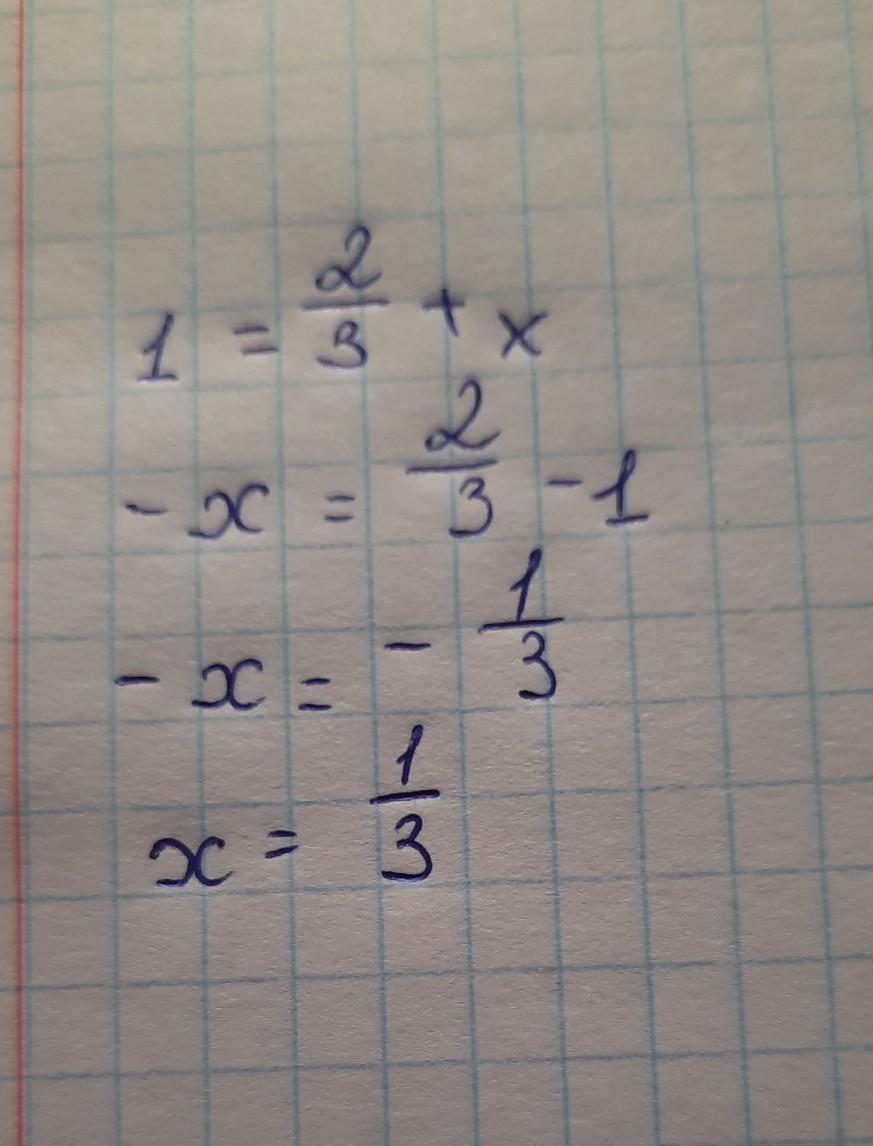 1 = 2/3 + x
-x = 2/3 - 1
-x = - 1/3
x = 1/3